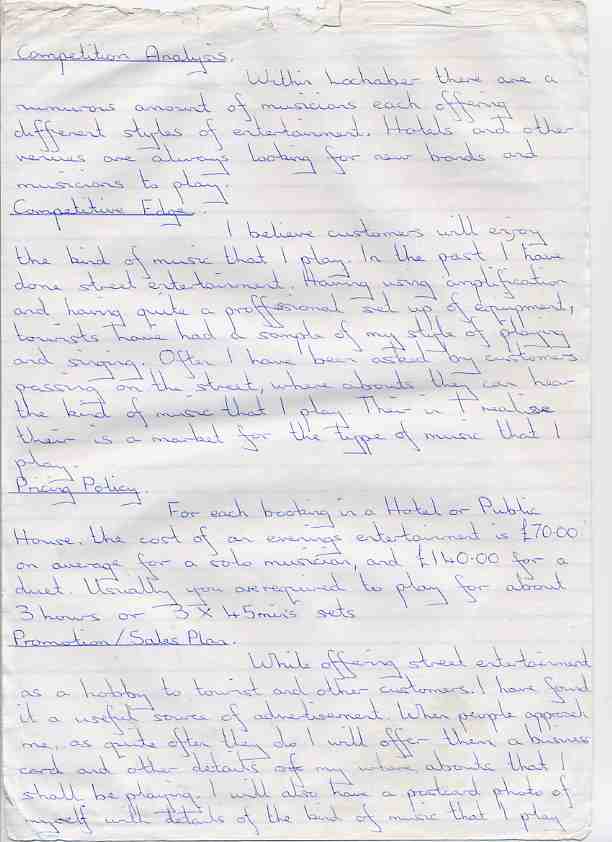 Competition Analysis.
Within Lochaber there are a
numurous amount of musicians each offering
different styles of entertainment. Hotels and other
venues are always looking for new bands and
musicians to play.
Competitive Edge.
I believe customers will enjoy
the kind of music that I play. In the past I have
done street entertainment. Having using amplification
and having quite a proffessional set up of equipment,
tourists have had a sample of my style of playing
and singing. Often I have been asked by customers
passing on the street, where abouts they can hear
the kind of music that I play. Their in I realise
their is a market for the type of music that I
play.
Pricing Policy.
For each booking in a Hotel or Public
House, the cost of an evenings entertainment is £70.00
on average for a solo musician, and £140.00 for a
duet. Usually you are required to play for about
3 hours or 3 x 45 mins sets
Promotion/Sales Plan.
While offering street entertainment
as a hobby to tourist and other customers. I have found
it a useful source of advertisement. When people approach
me, as quite often they do I will offer them a business
card and other details of my where abouts that I
shall be playing. I will also have a postcard photo of
myself with details of the kind of music that I play